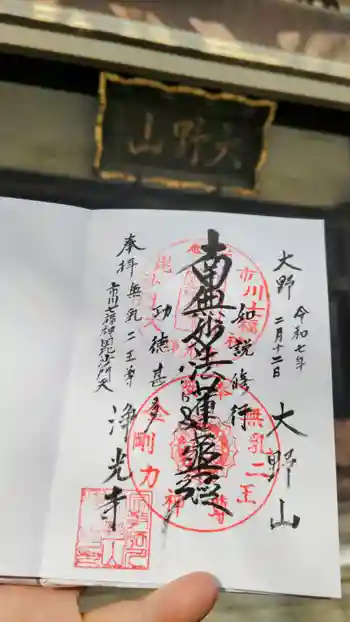 大野山
大野
令和七年
二月十二日
大野山
如説修行
南無妙法蓮華経
功徳甚多
奉拝 無乳二王尊
市川七福神毘沙門天
浄光寺
市川七福神
無乳二王
金剛力